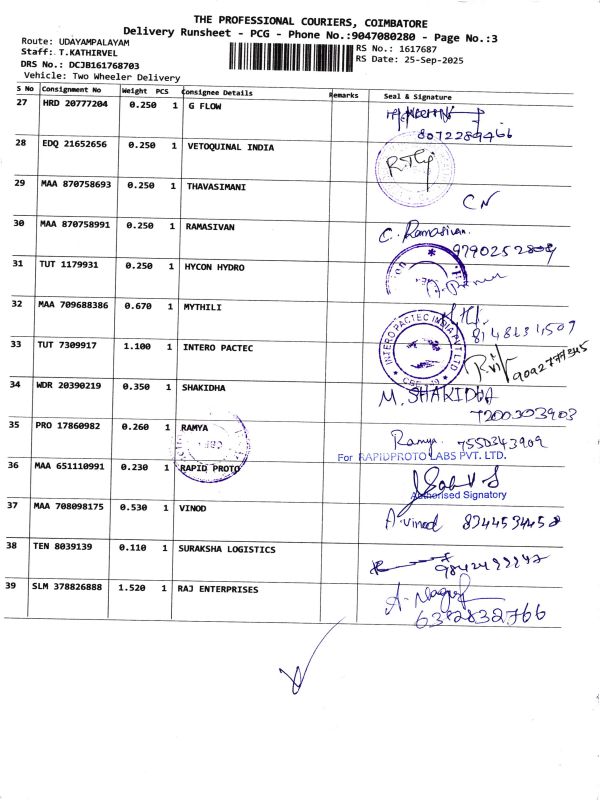 THE PROFESSIONAL COURIERS, COIMBATORE
Delivery Runsheet - PCG - Phone No.:9047080280 - Page No.:3
Route: UDAYAMPALAYAM
RS No.: 1617687
Staff: T.KATHIRVEL
RS Date: 25-Sep-2025
DRS No.: DCJB161768703
Vehicle: Two Wheeler Delivery
S No Consignment No Weight PCS Consignee Details Remarks Seal & Signature
27 HRD 20777204 0.250 1 G FLOW
8072289466
28 EDQ 21652656 0.250 1 VETOQUINAL INDIA
29 MAA 870758693 0.250 1 THAVASIMANI
CN
30 MAA 870758991 0.250 1 RAMASIVAN
C. Ramasivan.
31 TUT 1179931 0.250 1 HYCON HYDRO
32 MAA 709688386 0.670 1 MYTHILI
33 TUT 7309917 1.100 1 INTERO PACTEC
INTERO PACTEC INDIA PVT LTD
34 WDR 20390219 0.350 1 SHAKIDHA
M. SHAKIDHA
7200303903
35 PRO 17860982 0.260 1 RAMYA
Ramya 7550343909
For RAPIDPROTO LABS PVT. LTD.
36 MAA 651110991 0.230 1 RAPID PROTO
Authorised Signatory
37 MAA 708098175 0.530 1 VINOD
A. vinod
38 TEN 8039139 0.110 1 SURAKSHA LOGISTICS
39 SLM 378826888 1.520 1 RAJ ENTERPRISES
6382832766